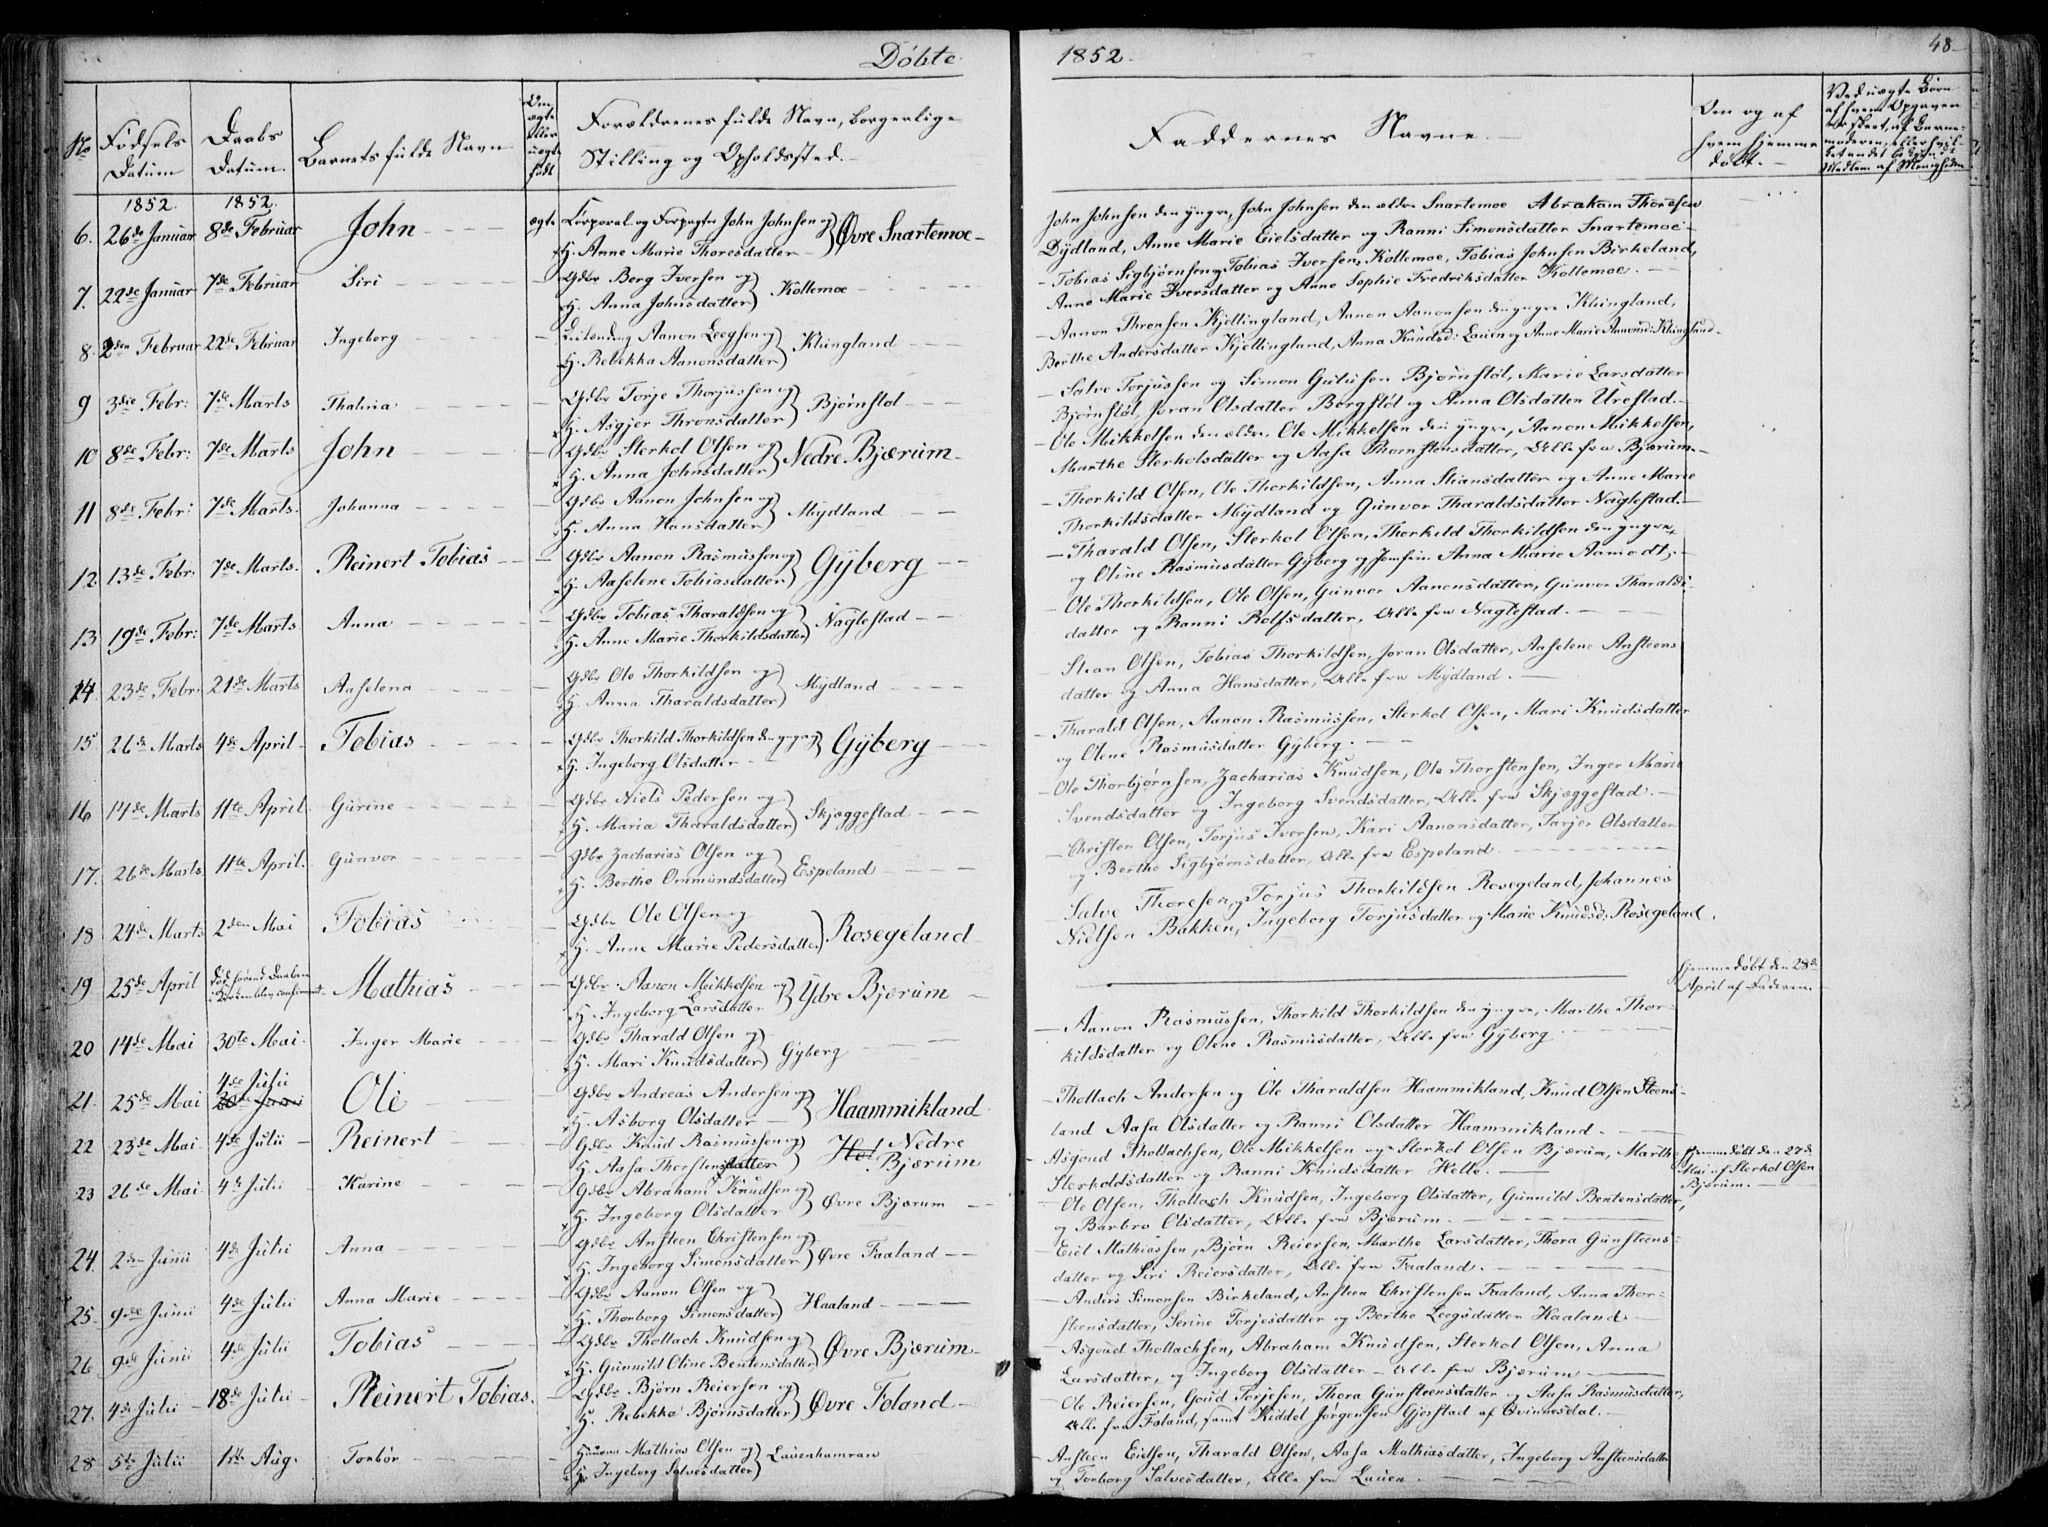 Döbte
1852
48
No
Fødsels Datum
Daabs Datum
Barnets fulde Navn
Om ægte eller uægte født
Forældrenes fulde Navn, borgerlige Stilling og Opholdssted.
Faddernes Navne.
Om og af hvem hjemme døbt.
1852. 1852.
6. 26de Januar 8de Februar John ægte Corporal og Forpagter John Johnsen og H. Anne Marie Thoresdatter Øvre Snartemoe
John Johnsen den yngre, John Johnsen den ældre Snartemoe Abraham Thoresen
Dydland, Anne Marie Eielsdatter og Ranni Simonsdatter Snartemoe
7. 22de Januar 7de Februar Siri Gdbr Berg Iversen og H. Anna Johnsdatter Kollemoe
Tobias Sigbjørnsen, Tobias Iversen, Kollemoe, Tobias Johnsen Birkeland,
Anne Marie Iversdatter og Anne Sophie Fredriksdatter Kollemoe.
8. 2den Februar 22de Februar Ingeborg Aanon Leegsen og H. Rebekka Aanonsdatter Klungland
Aanon Thronsen Kjellingland, Aanon Aanonsen den yngre Klungland,
Berthe Andersdatter Kjellingland, Anna Knudsd: Lauen og Anne Marie Aanonsd: Klungland
9 3die Febr: 7de Marts Thalena Gdbr Torje Thorjussen og H. Asgjer Thronsdatter Bjørnstøl
Salve Torjussen og Simon Bjørnstøl, Marie Larsdatter
Bjørnstøl, Joran Olsdatter Borgstøl og Anna Olsdatter Urestad.
10 8de Febr: 7de Marts John Gdbr Sterkol Olsen og H. Anna Johnsdatter Nedre Bjærum
Ole Mikkelsen den ældre, Ole Mikkelsen den yngre, Aanon Mikkelsen,
Marthe Sterkolsdatter og Aasa Thorstensdatter, Alle fra Bjærum.
11 8de Febr: 7de Marts. Johanna Gdbr Aanon Johnsen og H. Anna Hansdatter Mydland
Thorkild Olsen, Ole Thorkildsen, Anna Stiansdatter og Anne Marie
Thorkildsdatter Mydland og Gunvor Tharaldsdatter Naglestad.
12 13de Febr. 7de Marts. Reinert Tobias Gdbr Aanon Rasmussen og H. Aaselene Tobiasdatter Gyberg
Tharald Olsen, Sterkol Olsen, Thorkild Thorkildsen den yngre,
og Oline Rasmusdatter Gyberg og Jomfru Anna Marie Aamodt.
13 19de Febr: 7de Marts Anna Gdbr Tobias Tharaldsen og H. Anne Marie Thorkildsdatter Naglestad
Ole Thorkildsen, Ole Olsen, Gunvor Aanonsdatter, Gunvor Tharalds-
datter og Ranni Rolfsdatter, Alle fra Naglestad.
14. 23de Febr. 21de Marts Aaselena Gdbr Ole Thorkildsen og H. Anna Tharaldsdatter Mydland
Stian Olsen, Tobias Thorkildsen, Joran Olsdatter, Aaselene Ansteens
datter og Anna Hansdatter, Alle fra Mydland.
15 26de Marts 4de April Tobias Gdbr Thorkild Thorkildsen den yngre og H. Ingeborg Olsdatter Gyberg
Tharald Olsen, Aanon Rasmussen, Sterkol Olsen, Mari Knudsdatter
og Olene Rasmusdatter Gyberg.
16 14de Marts 11te April. Gurine Gdbr Niels Pedersen og H. Maria Tharaldsdatter Skjæggestad
Ole Thorbjørnsen, Zacharias Knudsen, Ole Thorstensen, Inger Marie
Svendsdatter og Ingeborg Svendsdatter, Alle fra Skjæggestad.
17. 26de Marts 11te April. Gunvor Gdbr Zacharias Olsen og H. Berthe Ommundsdatter Espeland
Christen Olsen, Torjus Iversen, Kari Aanonsdatter, Tarjer Olsdatter
og Berthe Sigbjørnsdatter, Alle fra Espeland.
18 24de Marts 2den Mai Tobias Gdbr Ole Olsen og H. Anne Marie Pedersdatter Rosegeland
Salve Thoresen og Torjus Thorkildsen Rosegeland, Johannes
Nielsen Bakken, Ingeborg Torjusdatter og Marie Knudsd: Rosegeland.
19 25de April Mathias Gdbr. Aanon Mikkelsen og H. Ingeborg Larsdatter Ydre Bjærum
hjemmedøbt den 28de April af Faderen.
20 14de Mai 30te Mai. Inger Marie Gdbr Tharald Olsen og H. Mari Knudsdatter Gyberg
Aanon Rasmussen, Thorkild Thorkildsen den yngre, Marthe Thor-
kildsdatter og Olene Rasmusdatter, Alle fra Gyberg.
21. 25de Mai 4de Julii Ole Gdbr Andreas Andersen og H. Asborg Olsdatter Haammikland
Thollach Andersen og Ole Tharaldsen Haammikland, Knud Olsen Steens-
land Aasa Olsdatter og Ranni Olsdatter Haammikland.
22 23de Mai. 4de Julii Reinert Gdbr Knud Rasmussen og H. Aasa Thorstensdatter Nedre Bjærum
Asgoud Thollachsen, Ole Mikkelsen og Sterkol Olsen Bjærum, Marthe
Sterkoldsdatter og Ranni Knudsdatter Helle.
hjemmedøbt den 27de Mai af Sterkol Olsen Bjærum.
23 26de Mai. 4de Julii Karine Gdbr Abraham Knudsen og H. Ingeborg Olsdatter Øvre Bjærum
Ole Olsen, Thollach Knudsen, Ingeborg Olsdatter, Gunnild Bentensdatter,
og Barbro Olsdatter, Alle fra Bjærum.
24. 2den Junii 4de Julii Anna Gdbr Ansteen Christensen og H. Ingeborg Simonsdatter Øvre Faaland
Eiel Mathiassen, Bjørn Reiersen, Marthe Larsdatter, Thora Gunsteens-
datter og Siri Reiersdatter, Alle fra Faaland.
25. 9de Junii 4de Julii Anna Marie Gdbr Aanon Olsen og H. Thorborg Simonsdatter Haaland
Anders Simonsen Birkeland, Ansteen Christensen Faaland, Anna Thor-
steensdatter, Serine Torjesdatter og Berthe Leegsdatter Haaland
26 9de Junii 4de Julii Tobias Gdbr Thollach Knudsen og H. Gunnild Oline Bentensdatter Øvre Bjærum
Asgoud Thollachsen, Abraham Knudsen, Sterkol Olsen, Anna
Larsdatter, og Ingeborg Olsdatter - Alle fra Bjærum
27. 4de Julii 18de Julii Reinert Tobias. Gdbr Bjørn Reiersen og H. Rebekka Bjørnsdatter Øvre Foland
Ole Reiersen, Goud Torjesen, Thora Gunsteensdatter og Aasa Rasmusdatter,
Alle fra Foland, samt Kiddel Jørgensen Gjerstad af Qvinnesdal.
28 5te Julii 1ste Aug. Torbor Mathias Olsen og H. Ingeborg Salvesdatter Lauenhamran
Ansteen Eielsen, Tharald Olsen, Aasa Mathiasdatter, Ingeborg Ansteensdatter
og Torborg Salvesdatter, Alle fra Lauen.